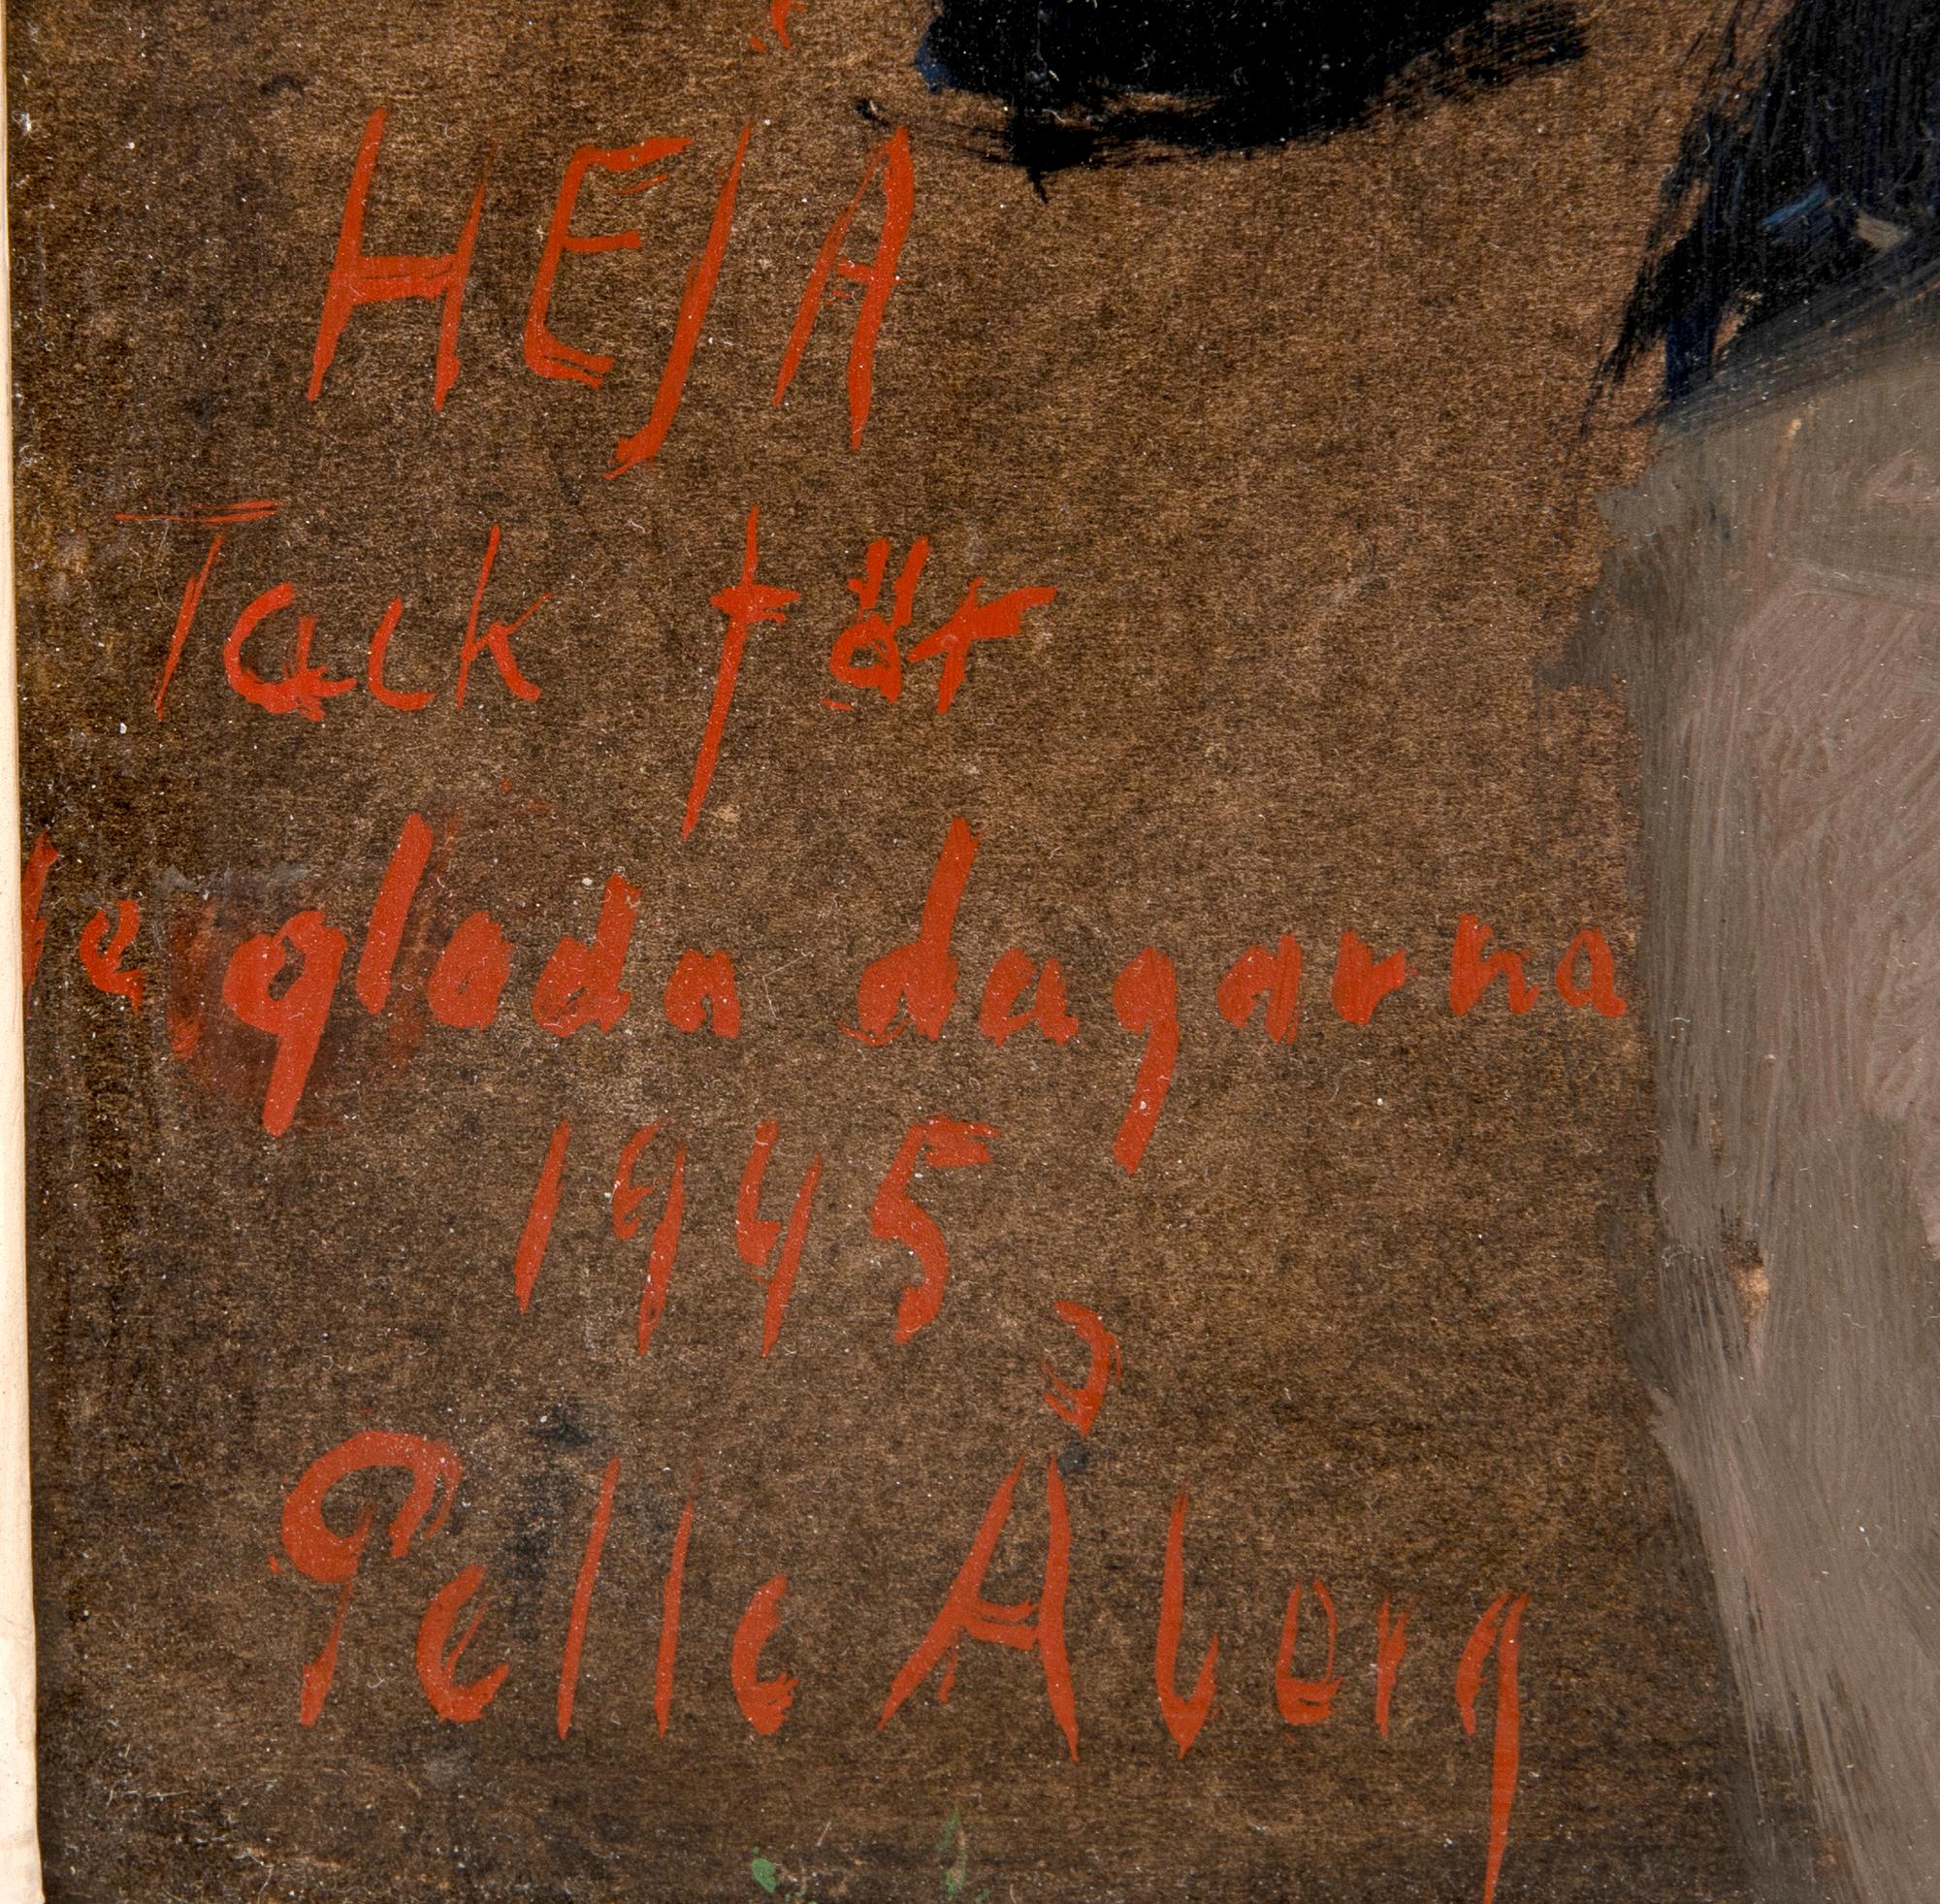 HEJA
Tack för
de glada dagarna
1945
Pelle Åberg